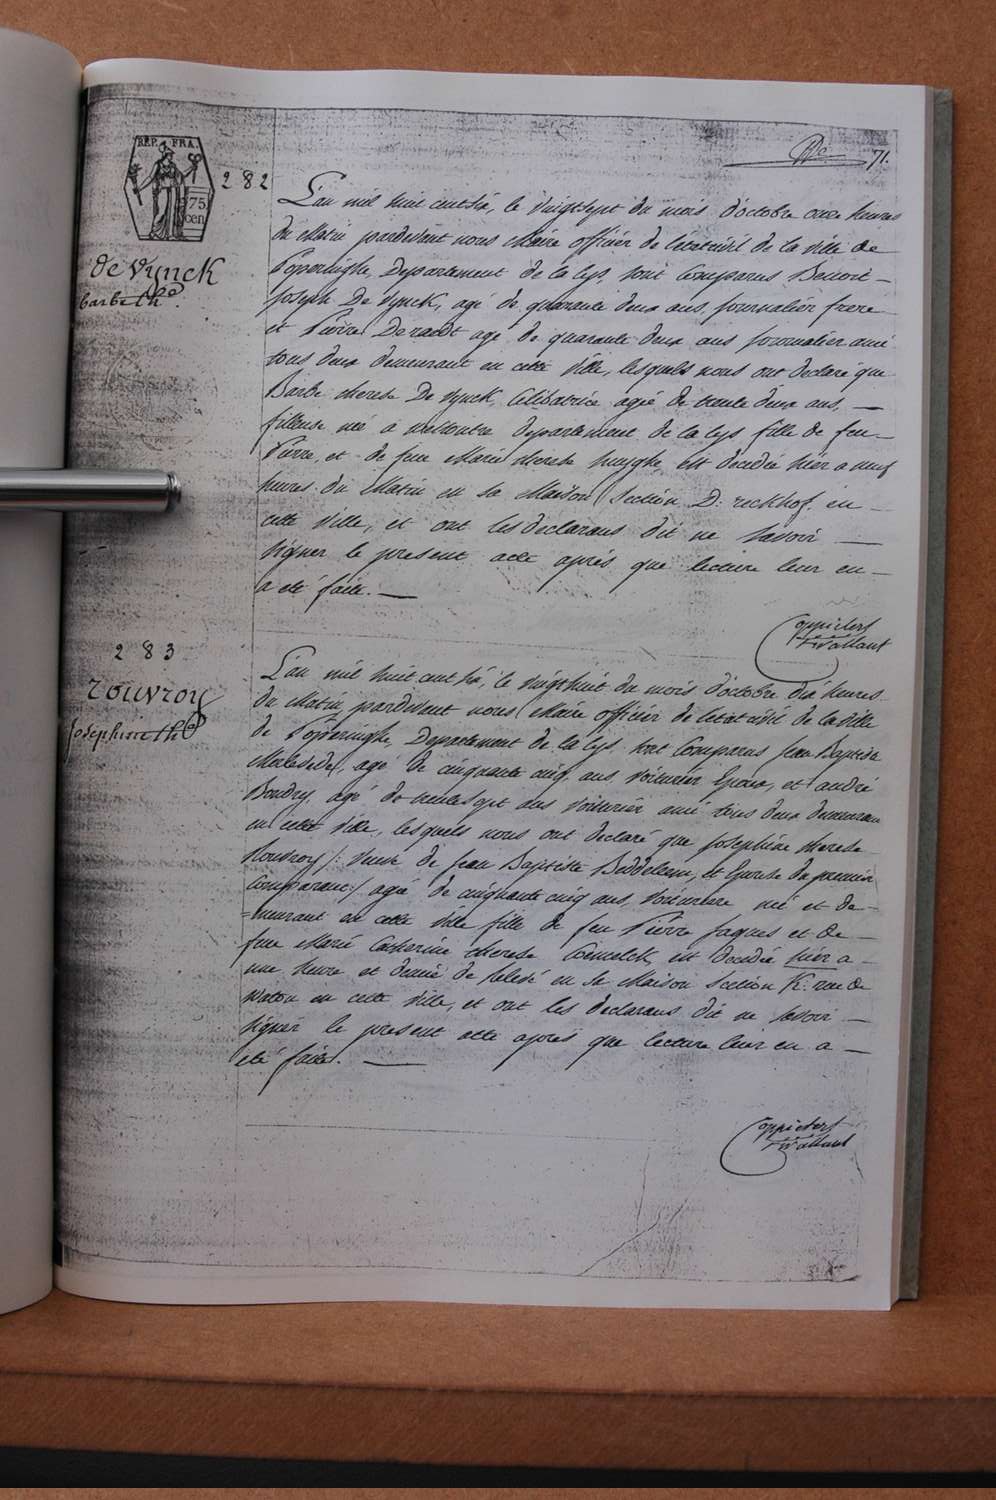 REP. FRA.
75
cen
71.
282
De Vynck
barbe the
L'an mil huit cent six, le vingt sept du mois d'octobre onze heures
du Matin pardevant nous Maire officier de l'etat civil de la ville de
Poperinghe, Departement de la Lys, sont Comparus Benoit
Joseph De Vynck, agé de quarante deux ans, journalier frere
et Pierre Deraedt agé de quarante deux ans journalier ami
tous deux demeurant en cette ville, lesquels nous ont declaré que
Barbe therese De Vynck, Célibatrice agée de trente deux ans,
fileuse née a departement de la lys fille de feu
Pierre, et de feue Marie therese huyghe est decedée hier a neuf
heures du Matin en sa Maison Section D: reckhof en
cette ville, et ont les declarans dit ne savoir
signer le present acte après que lecture leur en
a eté faite.
Coppieters
t'Wallant
283
rouvroy
Josephine the
L'an mil huit cent six, le vingthuit du mois d'octobre dix heures
du Matin, pardevant nous Maire officier de l'etat civil de la ville
de Poperinghe, Departement de la Lys, sont Comparus Jean Baptiste
agé de cinquante cinq ans voiturier Epoux, et andré
Boudry agé de trentesept ans voiturier ami tous deux demeurans
en cette ville, lesquels nous ont declaré que Josephine therese
Rouvroy /: veuve de Jean Baptiste et Epouse du premier
Comparant:/ agée de cinquante cinq ans, voituriere née et de-
=meurant en cette ville fille de feu Pierre Jaques et de
feue Marie Catherine therese est decedée hier a
une heure et demie de relevé en sa Maison Section K: rue de
watou en cette ville, et ont les declarans dit ne savoir
signer le present acte après que lecture leur en a
eté faite.
Coppieters
t'Wallant